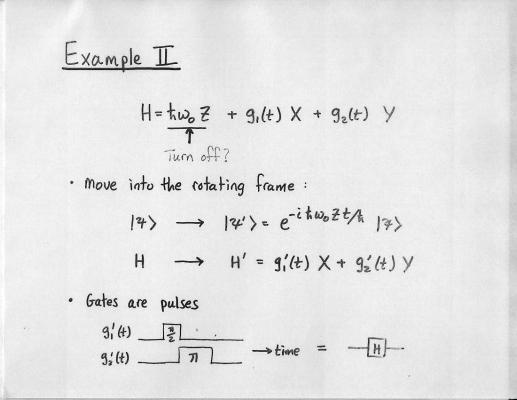 Example II
H = ħω₀ Z + g₁(t) X + g₂(t) Y
Turn off?
• Move into the rotating frame :
|ψ⟩ → |ψ'⟩ = e^{-iħω₀Zt/ħ} |ψ⟩
H → H' = g₁'(t) X + g₂'(t) Y
• Gates are pulses
g₁'(t) π/2
g₂'(t) π → time = H